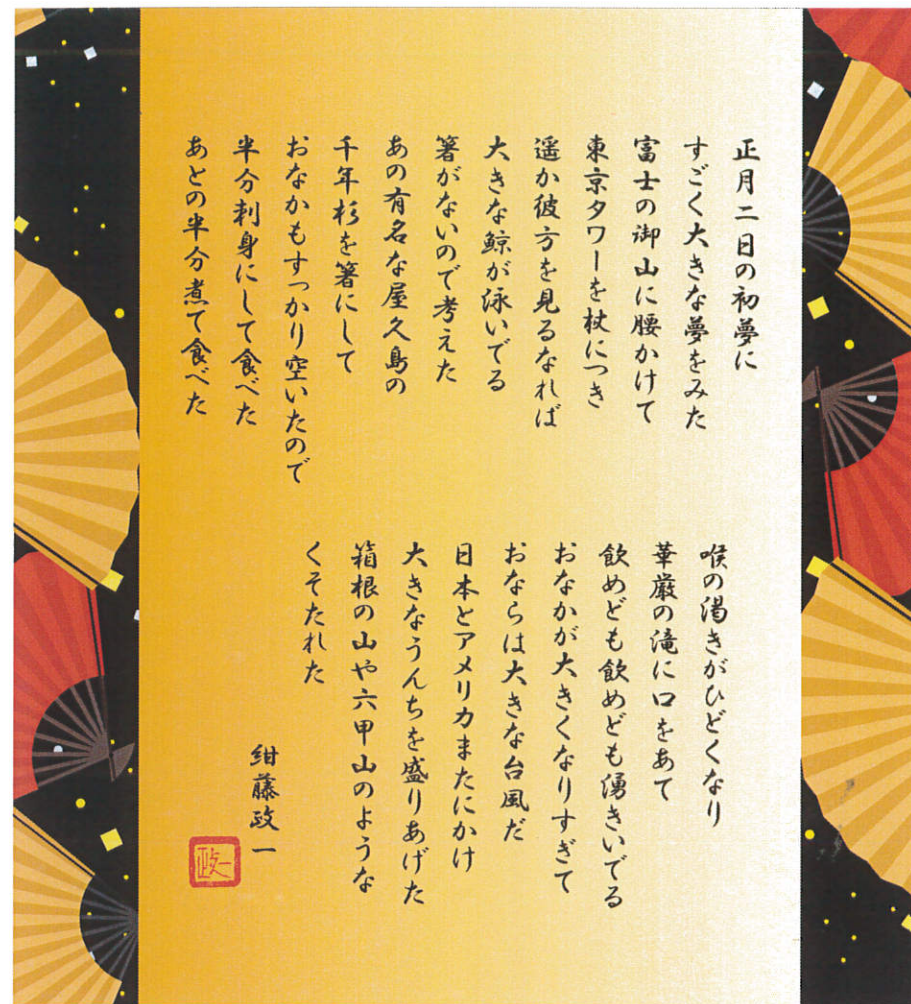 正月二日の初夢に
すごく大きな夢をみた
富士の御山に腰かけて
東京タワーを杖につき
遥か彼方を見るなれば
大きな鯨が泳いでる
箸がないので考えた
あの有名な屋久島の
千年杉を箸にして
おなかもすっかり空いたので
半分刺身にして食べた
あとの半分煮て食べた
喉の渇きがひどくなり
華厳の滝に口をあて
飲めども飲めども湧きいでる
おなかが大きくなりすぎて
おならは大きな台風だ
日本とアメリカまたにかけ
大きなうんちを盛りあげた
箱根の山や六甲山のような
くそたれた
紺藤政一
政一